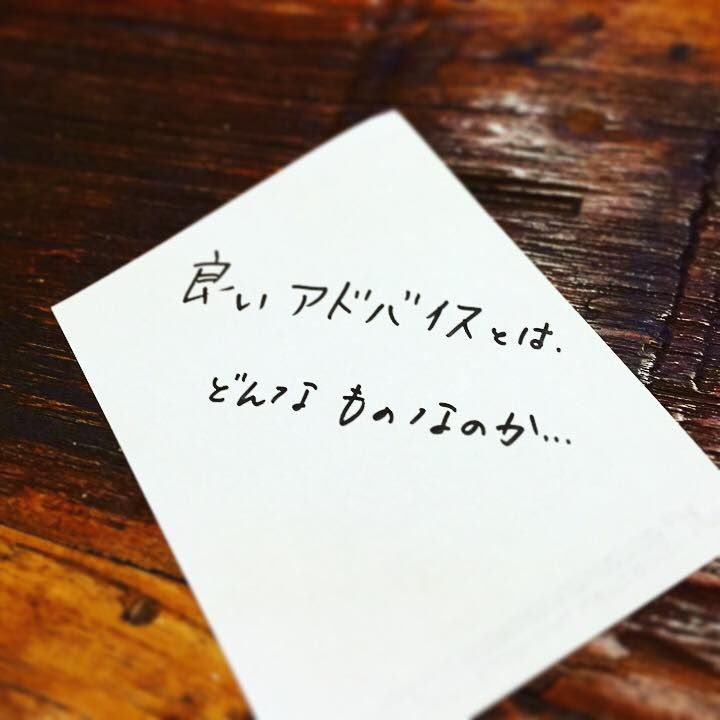 良い アドバイスとは.
どんな ものなのか...